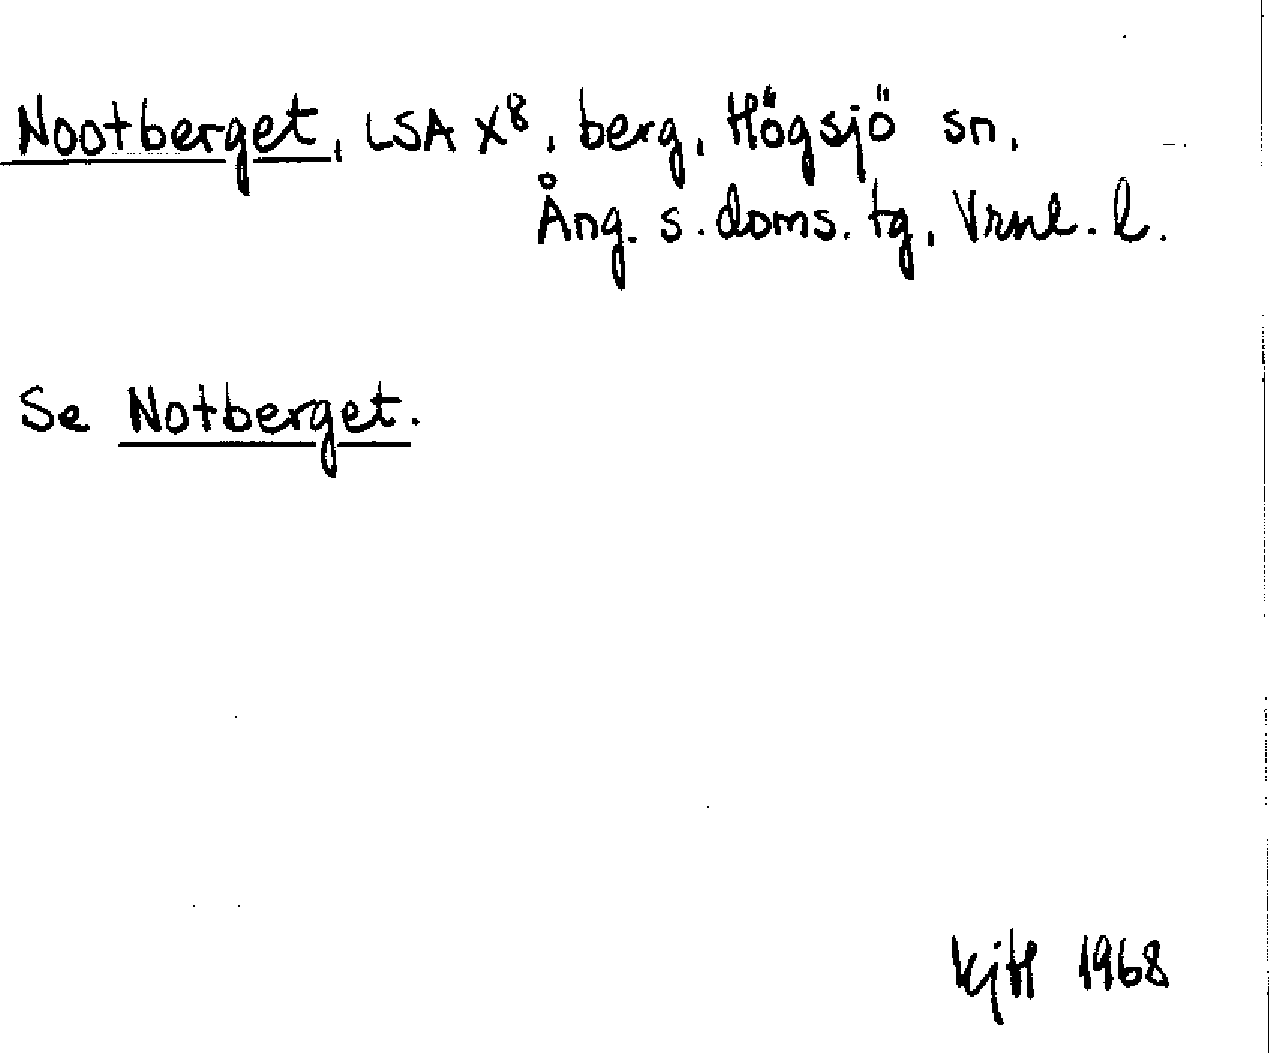 Nootberget, LSA X⁸, berg, Högsjö sn,
Ång. s. doms. tg, Vrnl. l.
Se Notberget.
KjH 1968